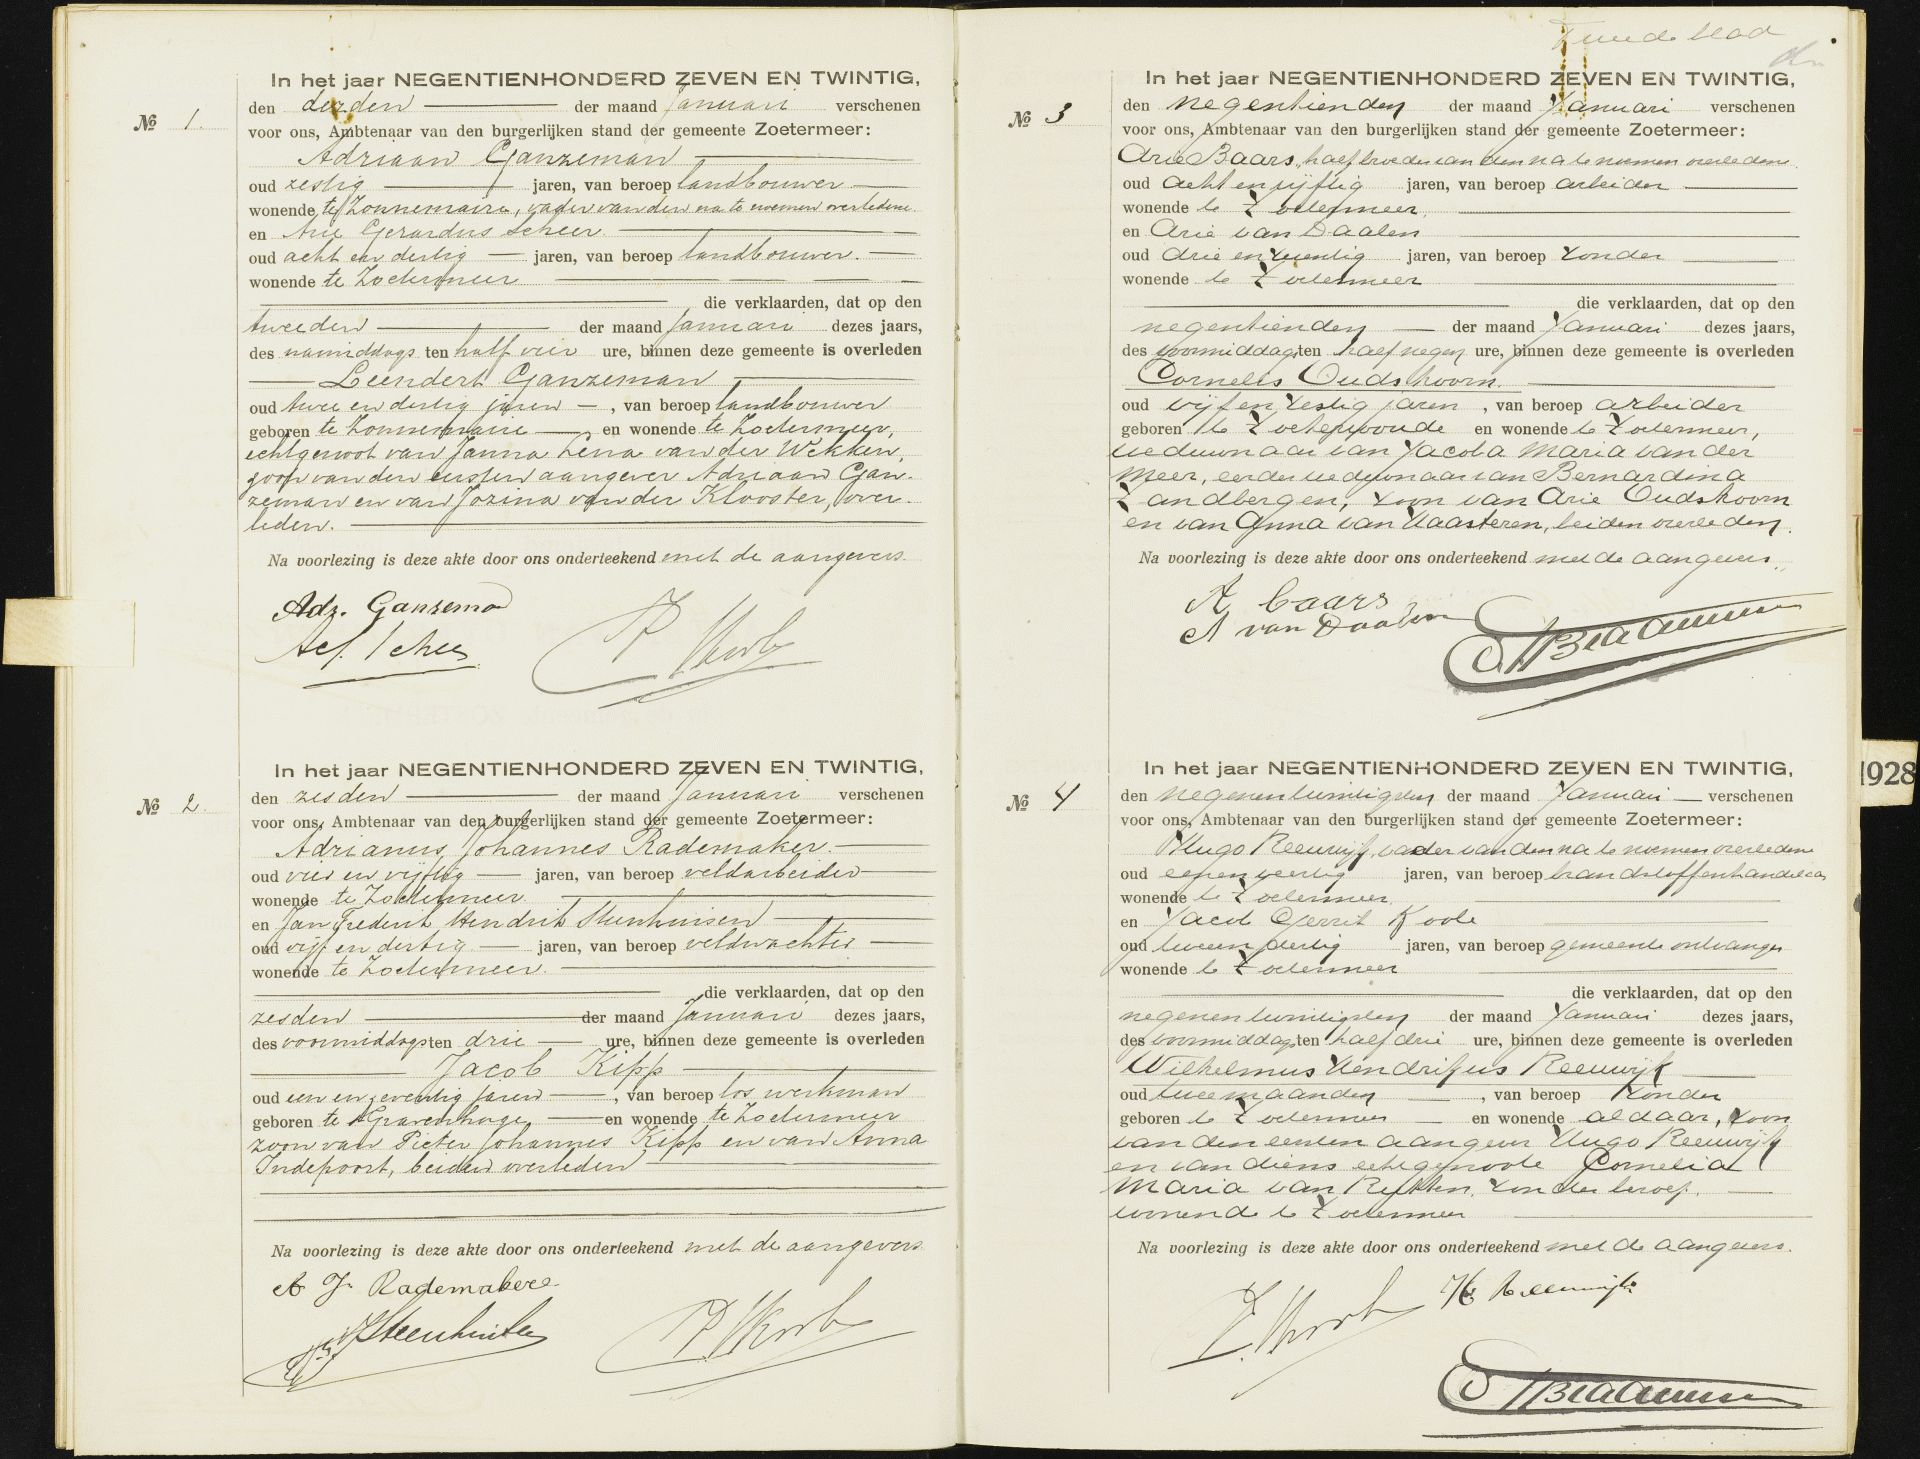 No 1.
In het jaar NEGENTIENHONDERD ZEVEN EN TWINTIG,
den derden der maand Januari verschenen
voor ons, Ambtenaar van den burgerlijken stand der gemeente Zoetermeer:
Adriaan Ganzeman
oud zestig jaren, van beroep landbouwer
wonende te Zonnemaire, vader van den na te noemen overledene
en Arie Gerardus Scheer
oud acht en dertig jaren, van beroep landbouwer.
wonende te Zoetermeer
die verklaarden, dat op den
tweeden der maand Januari dezes jaars,
des namiddags ten half vier ure, binnen deze gemeente is overleden
Leendert Ganzeman
oud twee en dertig jaren, van beroep landbouwer
geboren te Zonnemaire en wonende te Zoetermeer,
echtgenoot van Janna Lena van der Wekken,
zoon van den eersten aangever Adriaan Gan-
zeman en van Jozina van der Klooster, over-
leden.
Na voorlezing is deze akte door ons onderteekend met de aangevers.
Adr. Ganzeman
No 2.
In het jaar NEGENTIENHONDERD ZEVEN EN TWINTIG,
den zesden der maand Januari verschenen
voor ons, Ambtenaar van den burgerlijken stand der gemeente Zoetermeer:
Adrianus Johannes Rademaker.
oud vier en vijftig jaren, van beroep veldarbeider
wonende te Zoetermeer
en Jan Frederik Hendrik Steenhuisen
oud vijf en dertig jaren, van beroep veldwachter
wonende te Zoetermeer.
die verklaarden, dat op den
zesden der maand Januari dezes jaars,
des voormiddags ten drie ure, binnen deze gemeente is overleden
Jacob Kipp
oud een en zeventig jaren, van beroep los werkman
geboren te 's Gravenhage, en wonende te Zoetermeer
zoon van Pieter Johannes Kipp en van Anna
Indepoort, beiden overleden
Na voorlezing is deze akte door ons onderteekend met de aangevers
A J. Rademaker
Tweede blad
No 3
In het jaar NEGENTIENHONDERD ZEVEN EN TWINTIG,
den negentienden der maand Januari verschenen
voor ons, Ambtenaar van den burgerlijken stand der gemeente Zoetermeer:
Arie Baars, halfbroeder van den na te noemen overledene
oud acht en vijftig jaren, van beroep arbeider
wonende te Zoetermeer,
en Arie van Daalen
oud drie en twintig jaren, van beroep zonder
wonende te Zoetermeer
die verklaarden, dat op den
negentienden der maand Januari dezes jaars,
des voormiddags ten half negen ure, binnen deze gemeente is overleden
Cornelis Oudshoorn.
oud vijf en zestig jaren, van beroep arbeider
geboren te Zoeterwoude en wonende te Zoetermeer,
weduwnaar van Jacoba Maria van der
Meer, eerder weduwnaar van Bernardina
Zandbergen, zoon van Arie Oudshoorn
en van Anna van Haasteren, beiden overleden.
Na voorlezing is deze akte door ons onderteekend met de aangevers.
A, Baars
A van Daalen
No 4
In het jaar NEGENTIENHONDERD ZEVEN EN TWINTIG,
den negenentwintigsten der maand Januari verschenen
voor ons, Ambtenaar van den burgerlijken stand der gemeente Zoetermeer:
Hugo Reeuwijk, vader van den na te noemen overledene
oud eenenveertig jaren, van beroep brandstoffenhandelaar
wonende te Zoetermeer,
en Jacob Gerrit Koole
oud tweeendertig jaren, van beroep gemeente ontvanger
wonende te Zoetermeer
die verklaarden, dat op den
negenentwintigsten der maand Januari dezes jaars,
des voormiddags ten half drie ure, binnen deze gemeente is overleden
Wilhelmus Hendrikus Reeuwijk
oud twee maanden, van beroep zonder
geboren te Zoetermeer en wonende aldaar, zoon
van den eersten aangever Hugo Reeuwijk
en van diens echtgenoote Cornelia
Maria van Rutten, zonder beroep.
wonende te Zoetermeer
Na voorlezing is deze akte door ons onderteekend met de aangevers.
H. Reeuwijk
1928